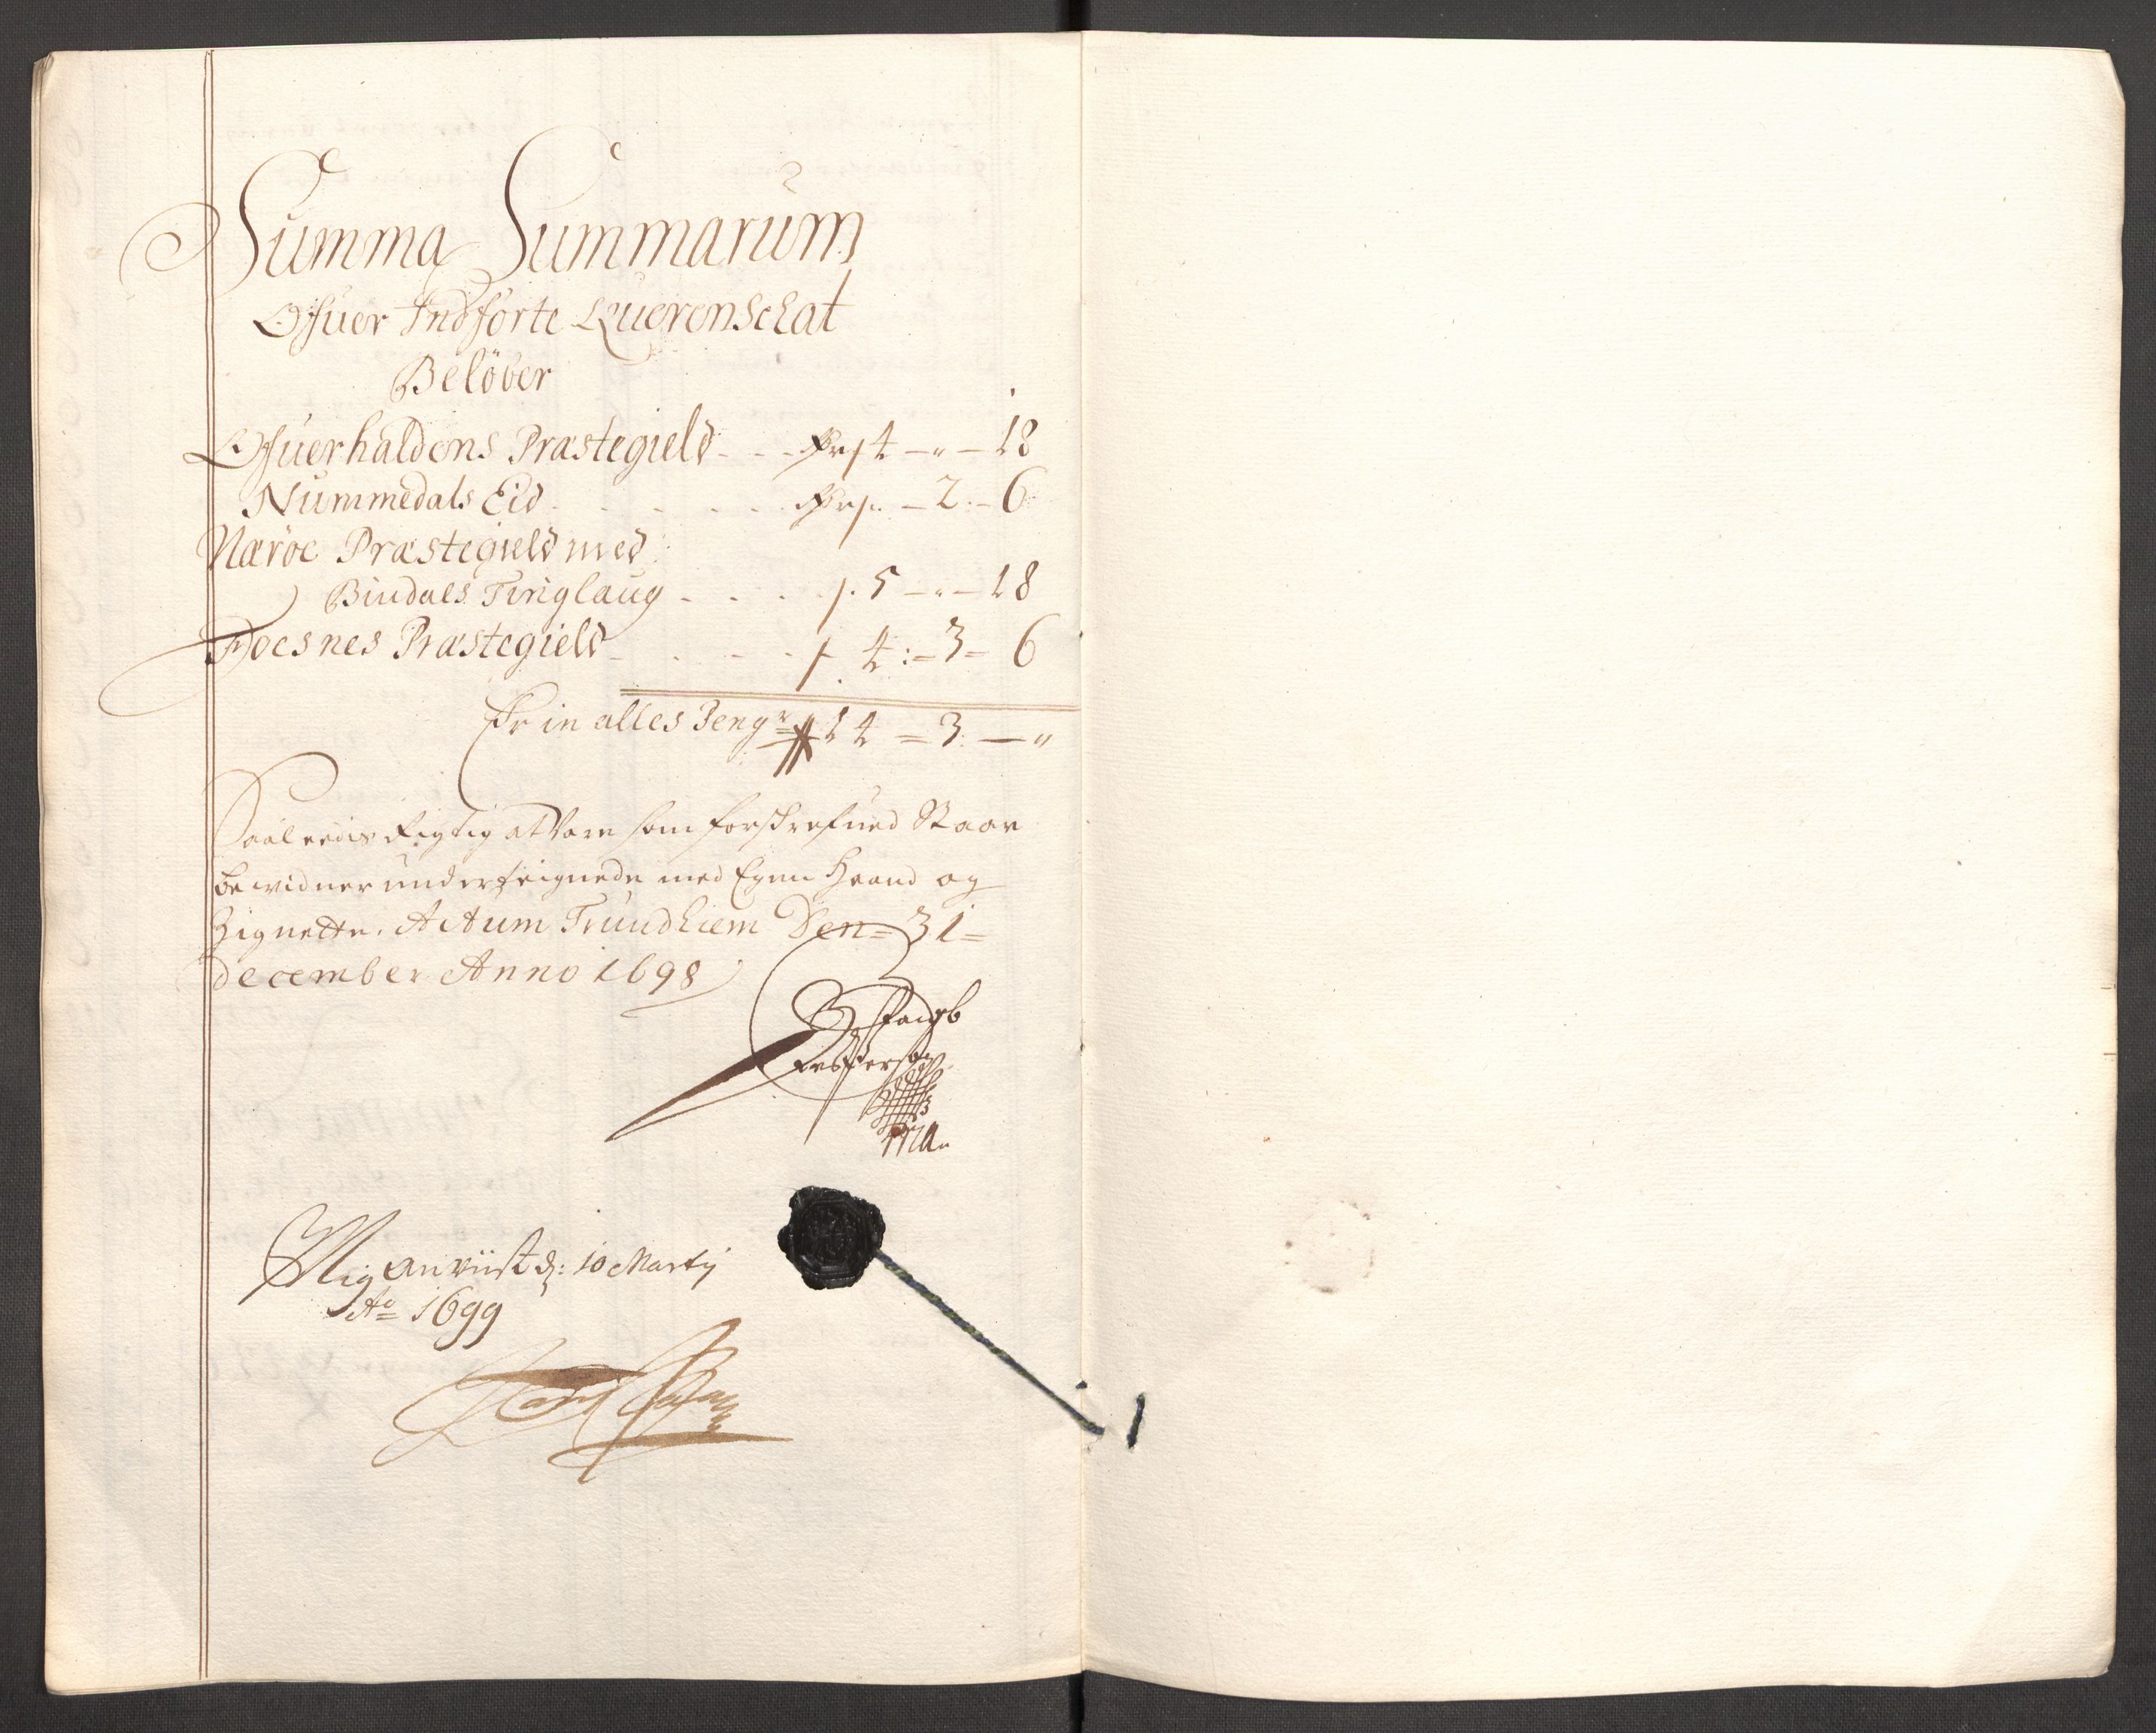 Summa Summarum
Ofuer Indförte Querenschat
Belöber
Ofuerhaldens Præstegield - - - 4 - " - 18
Nummedals Eid - - - - - 2 - 6
Næröe Præstegield med
Bindals Tinglaug - - - - 5 - " - 18
Foesnes Præstegield - - - - 4 : = 3 = 6
Er in alles Peng 14 = 3 : — "
Saaleedis Rigtig at Være som forschrefued Staar
bewidner underteignede med Egen Haand og
Zignette. Actum Trundhiem Den = 31 =
december Anno 1698
Jacob
Mig Anviist d: 10 Martij
Ao 1699